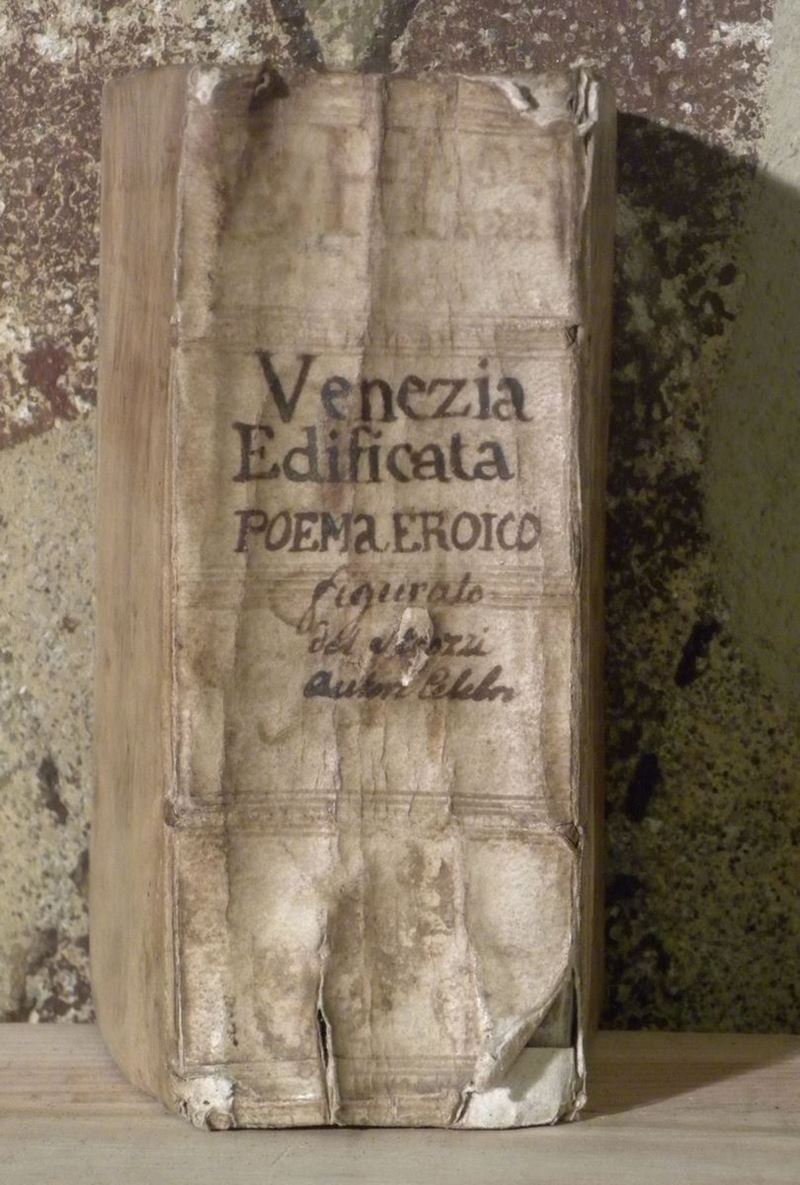 Venezia
Edificata
POEMa EROICO
figurato
del Strozzi
Autor Celebr